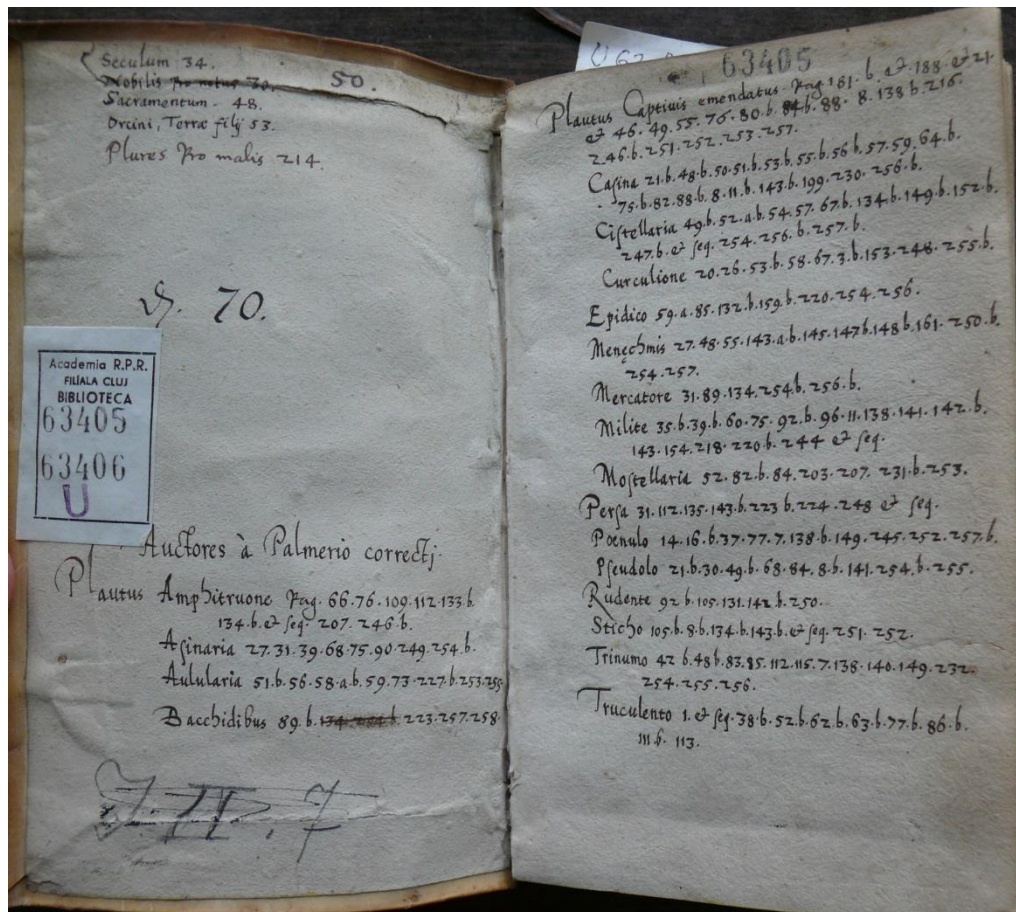 Seculum 34.
Nobilis pro notus 70. 50.
Sacramentum. 48.
Orcini, Terræ filij 53.
Plures Pro malis 214.
70.
Academia R.P.R.
FILIALA CLUJ
BIBLIOTECA
63405
63406
U
Auctores à Palmerio correctj.
Plautus Amphitruone Pag. 66.76.109.112.133.b.
134.b.et seq. 207. 246.b.
Asinaria 27.31.39.68.75.90.249.254.b.
Aulularia 51.b.56.58.a.b.59.73.227.b.253.255
Bacchidibus 89.b. 223.257.258
63405
Plautus Captiuis emendatus. Pag 181.b. et.188.et 21.
et 46.49.55.76.80.b.84.b.88. 8.138 b.216.
246.b.251.252.253.257.
Casina 21.b.48.b.50.51.b.53.b.55.b.56.b.57.59.64.b.
75.b.82.88.b.8.11.b.143.b.199.230.256.b.
Cistellaria 49.b.52.a.b.54.57.67.b.134.b.149.b.152.b.
247.b.et seq. 254.256.b.257.b.
Curculione 20.26.53.b.58.67.3.b.153.248.255.b.
Epidico 59.a.85.132.b.159.b.220.254.256.
Menęchmis 27.48.55.143.a.b.145.147b.148b.161.250.b.
254.257.
Mercatore 31.89.134.254.b.256.b.
Milite 35.b.39.b.60.75.92.b.96.11.138.141.142.b.
143.154.218.220.b.244 et seq.
Mostellaria 52.82.b.84.203.207.231.b.253.
Persa 31.112.135.143.b.223 b.224.248 et seq.
Poenulo 14.16.b.37.77.7.138.b.149.245.252.257.b.
Pseudolo 21.b.30.49.b.68.84.8.b.141.254.b.255.
Rudente 92 b.105.131.142 b.250.
Sticho 105.b.8.b.134.b.143.b.et seq. 251.252.
Trinumo 42 b.48 b.83.85.112.115.7.138.140.149.232.
254.255.256.
Truculento 1. et seq.38.b.52.b.62.b.63.b.77.b.86.b.
111.b. 113.